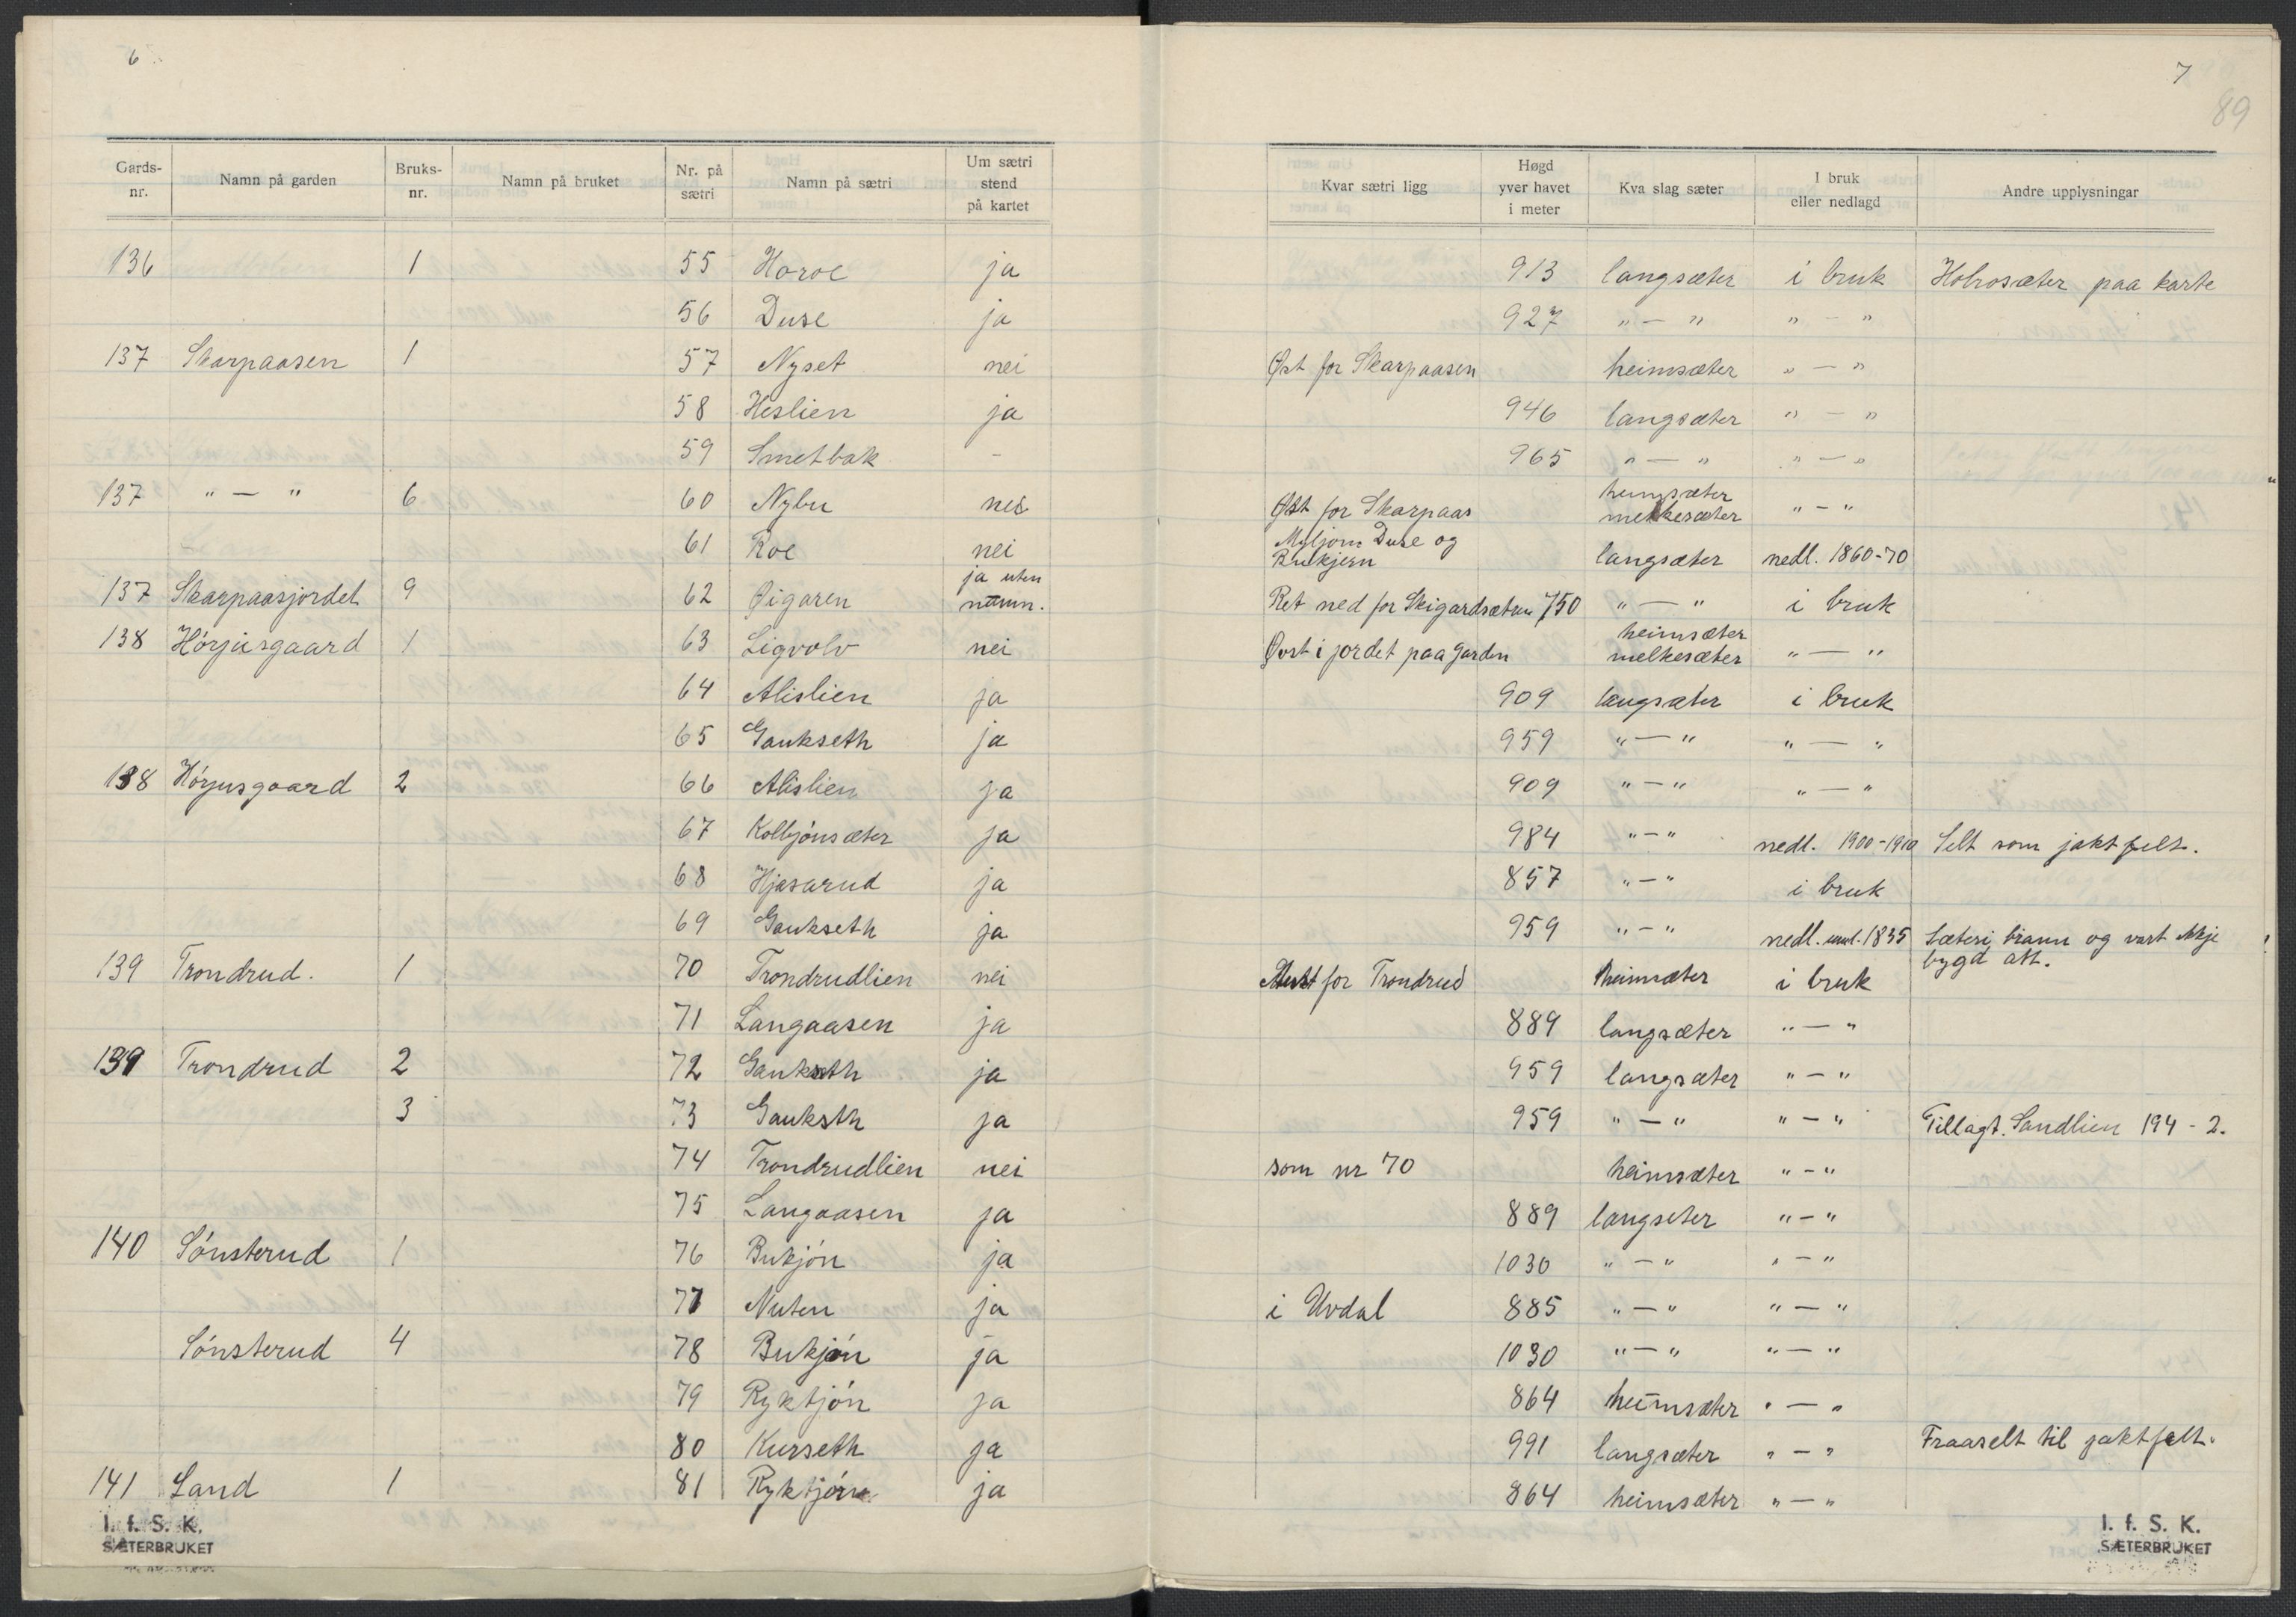 6
Gards-nr. Namn på garden Bruks-nr. Namn på bruket Nr. på sætri Namn på sætri Um sætri stend på kartet
136 1 55 Horoe ja
56 Duse ja
137 Skarpaasen 1 57 Nyset nei
58 Heslien ja
59 Smetbak -
137 " — " 6 60 Nybu nei
61 Roe nei
137 Skarpaasjordet 9 62 Øigaren ja uten namn.
138 Hörjusgaard 1 63 Ligvolv nei
64 Alislien ja
65 Gaukseth ja
138 Hörjusgaard 2 66 Alislien ja
67 Kolbjönsæter ja
68 Hjæsarud ja
69 Gaukseth ja
139 Trondrud. 1 70 Trondrudlien nei
71 Langaasen ja
139 Trondrud 2 72 Gaukseth ja
3 73 Gauksth ja
74 Trondrudlien nei
75 Langaasen ja
140 Sönsterud 1 76 Bukjön ja
77 Nuten ja
Sönsterud 4 78 Bukjön ja
79 Ryktjön ja
80 Kurseth ja
141 Land 1 81 Ryktjörn ja
I. f. S. K.
SÆTERBRUKET
7
89
Kvar sætri ligg Høgd yver havet i meter Kva slag sæter I bruk eller nedlagd Andre upplysningar
913 langsæter i bruk Holrosæter paa karte
927 " — " " — "
Øst for Skarpaasen heimsæter " — "
946 langsæter " — "
965 " — " " — "
Øst for Skarpaas heimsæter melkesæter " — "
Myljom Duse og Bukjern langsæter nedl. 1860-70
Ret ned for Skigardsætren 750 " — " i bruk
Øvst i jordet paa garden heimsæter melkesæter " — "
909 langsæter i bruk
959 " — " " — "
909 " — " " — "
984 " — " nedl. 1900-1910 Selt som jaktfelt.
857 " — " i bruk
959 " — " nedl. uml. 1835 Sæteri brann og vart ikkje bygd att.
Aust for Trondrud heimsæter i bruk
889 langsæter " — "
959 langsæter " — "
959 " — " " — " Tillagt. Sandlien 194 - 2.
som nr 70 heimsæter " — "
889 langseter " — "
1030 " — " " — "
i Uvdal 885 " — " " — "
1030 " — " " — "
864 heimsæter " — "
991 langsæter " — " Fraaselt til jaktfelt.
864 heimsæter " — "
I. f. S. K.
SÆTERBRUKET